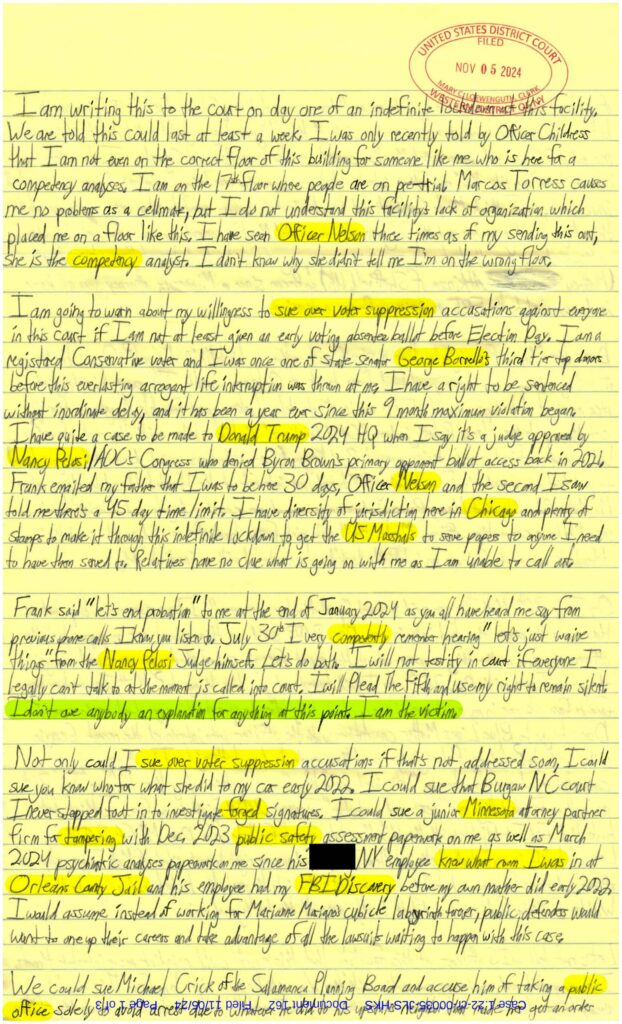 UNITED STATES DISTRICT COURT
FILED
NOV 05 2024
MARY C. LOEWENGUTH, CLERK
WESTERN DISTRICT OF NY
I am writing this to the court on day one of an indefinite lockdown at this facility.
We are told this could last at least a week. I was only recently told by Officer Childress
that I am not even on the correct floor of this building for someone like me who is here for a
competency analyses. I am on the 17th floor where people are on pre-trial. Marcos Torress causes
me no problems as a cellmate, but I do not understand this facility's lack of organization which
placed me on a floor like this. I have seen Officer Nelson three times as of my sending this out,
she is the competency analyst. I don't know why she didn't tell me I'm on the wrong floor.
I am going to warn about my willingness to sue over voter suppression accusations against everyone
in this court if I am not at least given an early voting absentee ballot before Election Day. I am a
registered Conservative voter and I was once one of state senator George Borrello's third tier top donors
before this everlasting arrogant life interruption was thrown at me. I have a right to be sentenced
without inordinate delay, and it has been a year ever since this 9 month maximum violation began.
I have quite a case to be made to Donald Trump 2024 HQ when I say it's a judge approved by
Nancy Pelosi/AOC's Congress who denied Byron Brown's primary opponent ballot access back in 2021.
Frank emailed my father that I was to be here 30 days, Officer Nelson and the second I saw
told me there's a 45 day time limit. I have diversity of jurisdiction here in Chicago and plenty of
stamps to make it through this indefinite lockdown to get the US Marshals to serve papers to anyone I need
to have them served to. Relatives have no clue what is going on with me as I am unable to call out.
Frank said "let's end probation" to me at the end of January 2024 as you all have heard me say from
previous phone calls I know you listen to. July 30th I very competently remember hearing "let's just waive
things" from the Nancy Pelosi Judge himself. Let's do both. I will not testify in court if everyone I
legally can't talk to at the moment is called into court. I will Plead The Fifth and use my right to remain silent.
I don't owe anybody an explanation for anything at this point. I am the victim.
Not only could I sue over voter suppression accusations if that's not addressed soon, I could
sue you know who for what she did to my car early 2022. I could sue that Burgaw NC court
I never stepped foot in to investigate forged signatures. I could sue a junior Minnesota attorney partner
firm for tampering with Dec. 2023 public safety assessment paperwork on me as well as March
2024 psychiatric analyses paperwork on me since his NY employee know what room I was in at
Orleans County Jail and his employee had my FBI Discovery before my own mother did early 2022.
I would assume instead of working for Marianne Mariano's cubicle labyrinth forever, public defenders would
want to one up their careers and take advantage of all the lawsuits waiting to happen with this case.
We could sue Michael Crick of the Salamanca Planning Board and accuse him of taking a public
office solely to avoid arrest due to whatever he did to his upstairs neighbor that made her get an order
Case 1:22-cr-00035-JLS-HKS Document 162 Filed 11/05/24 Page 1 of 3